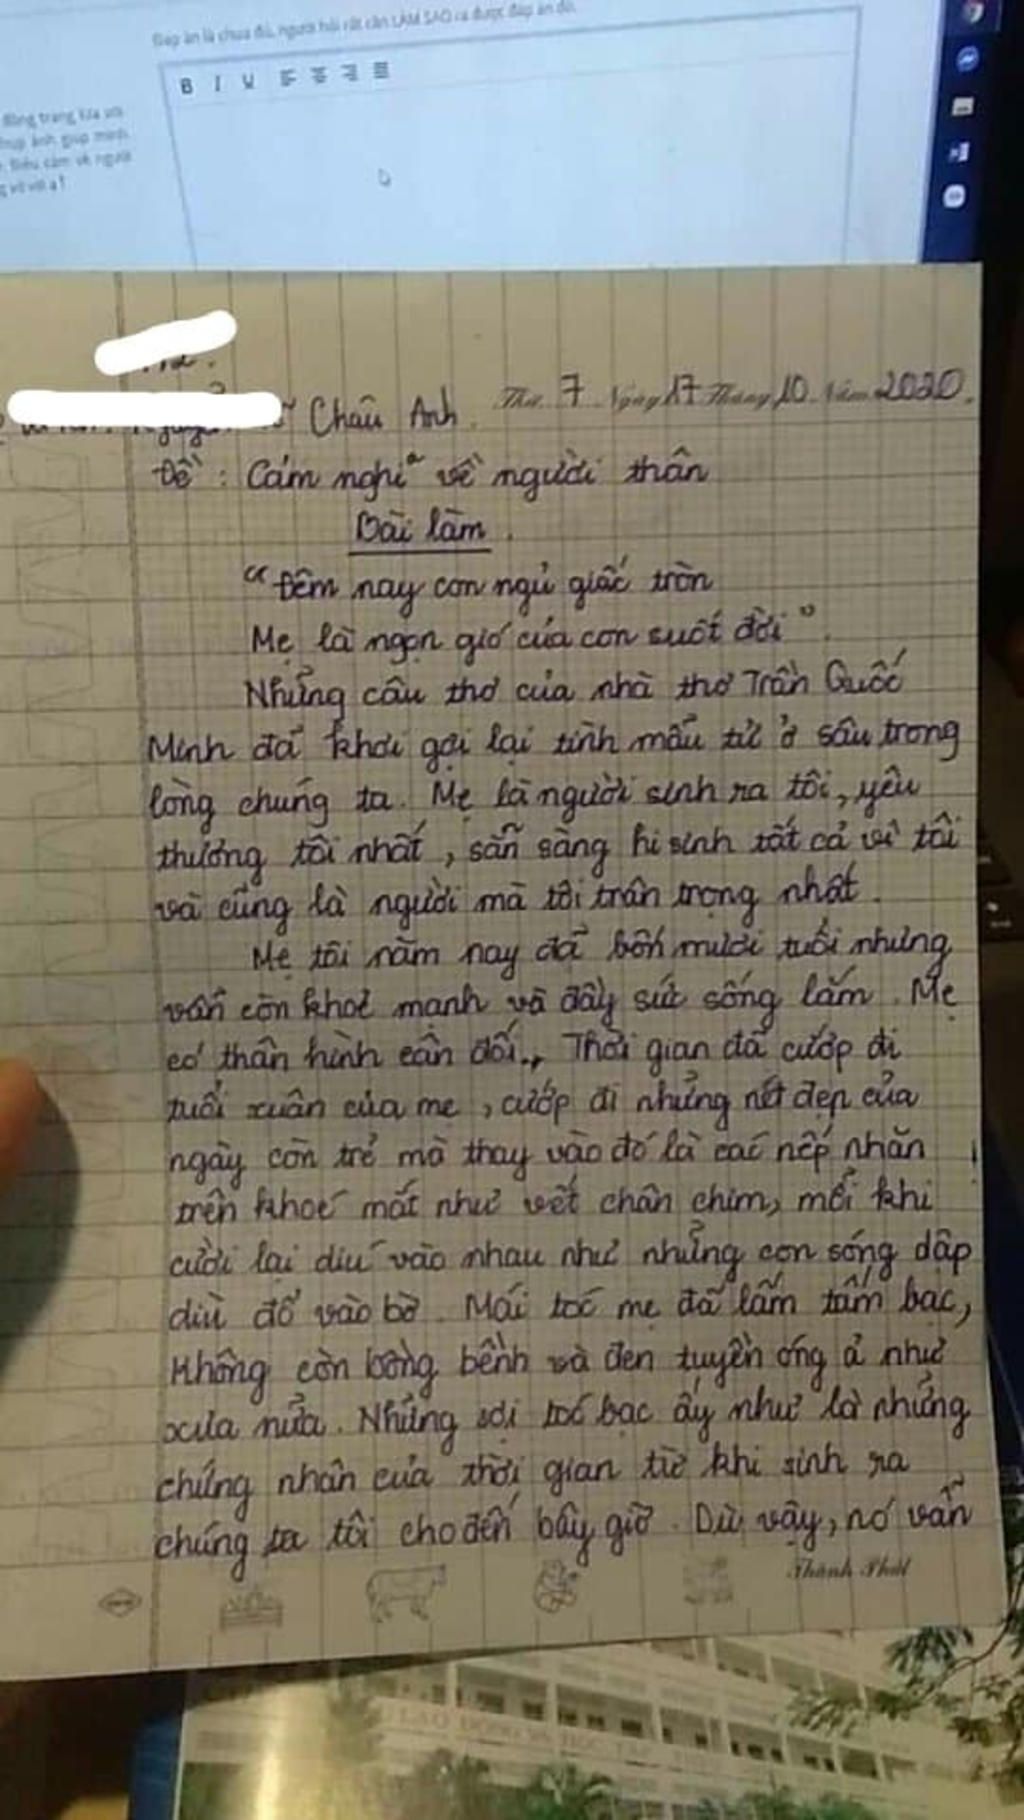 Đáp án là chưa đủ, người hỏi rất cần LÀM SAO ra được đáp án đó.
B I U
Thứ 7 Ngày 17 Tháng 10 Năm 2020.
Châu Anh.
Đề : Cảm nghĩ về người thân
Bài làm.
"Đêm nay con ngủ giấc tròn
Mẹ là ngọn gió của con suốt đời".
Những câu thơ của nhà thơ Trần Quốc
Minh đã khơi gợi lại tình mẫu tử ở sâu trong
lòng chúng ta. Mẹ là người sinh ra tôi, yêu
thương tôi nhất, sẵn sàng hi sinh tất cả vì tôi
và cũng là người mà tôi trân trọng nhất.
Mẹ tôi năm nay đã bốn mươi tuổi nhưng
vẫn còn khoẻ mạnh và đầy sức sống lắm. Mẹ
có thân hình cân đối., Thời gian đã cướp đi
tuổi xuân của mẹ, cướp đi những nét đẹp của
ngày còn trẻ mà thay vào đó là các nếp nhăn
trên khoé mắt như vết chân chim, mỗi khi
cười lại díu vào nhau như những con sóng dập
dìu đổ vào bờ. Mái tóc mẹ đã lấm tấm bạc,
không còn bồng bềnh và đen tuyền óng ả như
xưa nữa. Những sợi tóc bạc ấy như là những
chứng nhân của thời gian từ khi sinh ra
chúng ta tôi cho đến bây giờ. Dù vậy, nó vẫn
Thành Phát